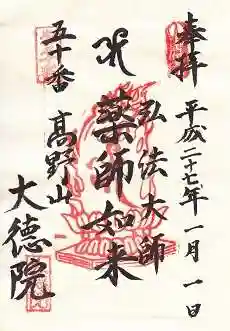 奉拝
平成二十七年一月一日
弘法大師
薬師如来
五十番
髙野山
大徳院